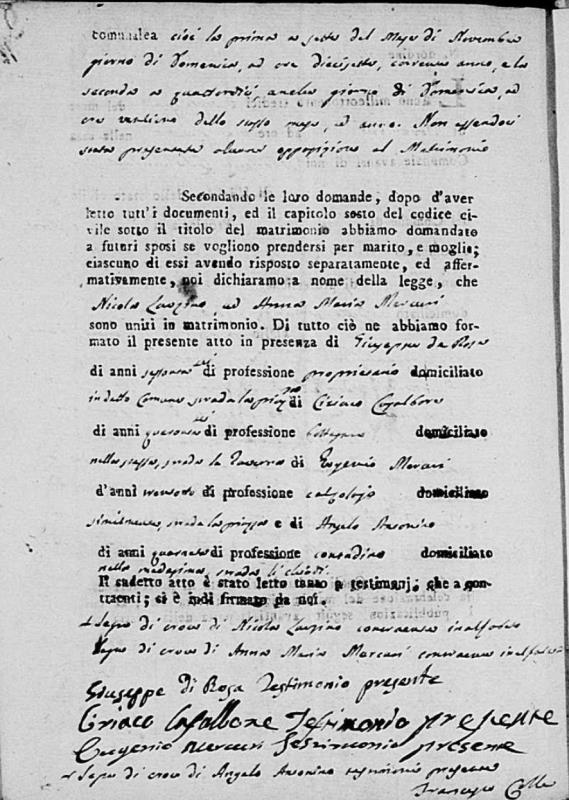 comunale a cioè la prima a sette del Mese di Novembre
giorno di Domenica, ad ore diecisette, corrente anno, e la
seconda a quattordici anche giorno di Domenica, ad
ore ventuno dello stesso mese, ed anno. Non essendoci
stata presentata alcuna opposizione al Matrimonio
Secondando le loro domande, dopo d'aver
letto tutt'i documenti, ed il capitolo sesto del codice ci-
vile sotto il titolo del matrimonio abbiamo domandato
a futuri sposi se vogliono prendersi per marito, e moglie;
ciascuno di essi avendo risposto separatamente, ed affer-
mativamente, noi dichiaramo a nome della legge, che
Nicola ed Anna Maria Mercuri
sono uniti in matrimonio. Di tutto ciò ne abbiamo for-
mato il presente atto in presenza di Giuseppe de Rosa
di anni di professione proprietario domiciliato
in detto Comune strada la di Ciriaco
di anni di professione domiciliato
nella stessa, strada la Taverna di Eugenio Mercuri
d'anni di professione calzolajo domiciliato
similmente, strada la piazza e di Angelo Antonino
di anni quaranta di professione contadino domiciliato
nella medesima, strada li
Il sudetto atto è stato letto tanto a testimonj, che a con-
traenti; si è indi firmato da noi.
+ Segno di croce di Nicola contraente inalfabeto
Segno di croce di Anna Maria Mercuri contraente inalfabeta
Giuseppe di Rosa Testimonio presente
Ciriaco Testimonio presente
Eugenio Mercuri Testimonio presente
+ Segno di croce di Angelo Antonino testimonio presente
Francesco